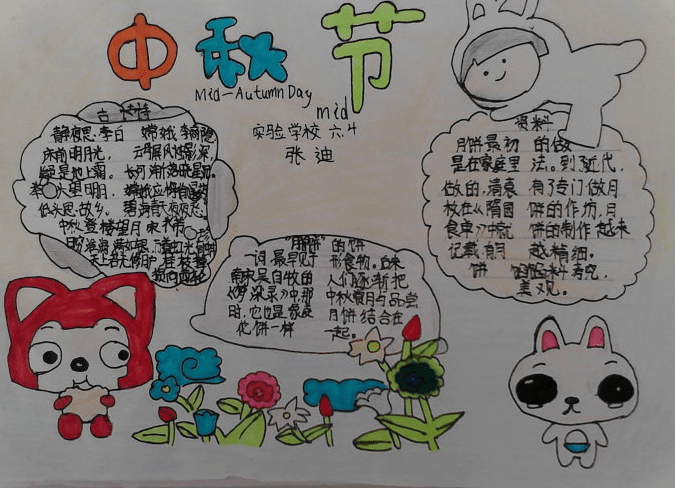 中秋节
Mid-Autumn Day
mid
实验学校 六.4
张迪
古诗
静夜思 李白
床前明月光,
疑是地上霜。
举头望明月,
低头思故乡。
嫦娥 李商隐
云母屏风烛影深,
长河渐落晓星沉。
嫦娥应悔偷灵药
碧海青天夜夜心
中秋登楼望月 宋 米芾
"月饼"
一词,最早见于
南宋吴自牧的
《梦梁录》中,那
时,它也是象菱
花饼一样
的饼
形食物。后来
人们逐渐把
中秋赏月与品尝
月饼结合在
一起。
资料
月饼最初
是在家庭里
做的,清袁
枚在《隋园
食单》中就
记载
饼
的做
法。到了近代,
有了专门做月
饼的作坊,月
饼的制作越来
越精细。
美观。